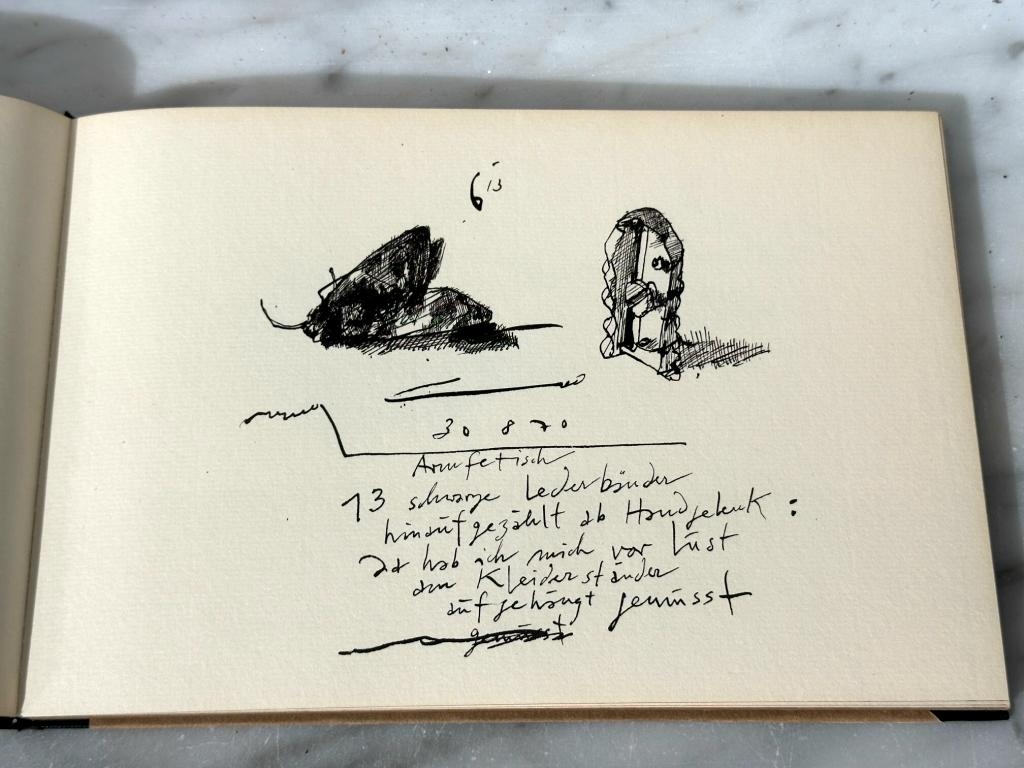 6 13
30 8 70
Armfetisch
13 schwarze Lederbänder
hinaufgezählt ab Handgelenk :
da hab ich mich vor Lust
am Kleiderständer
aufgehängt gewusst
gewusst